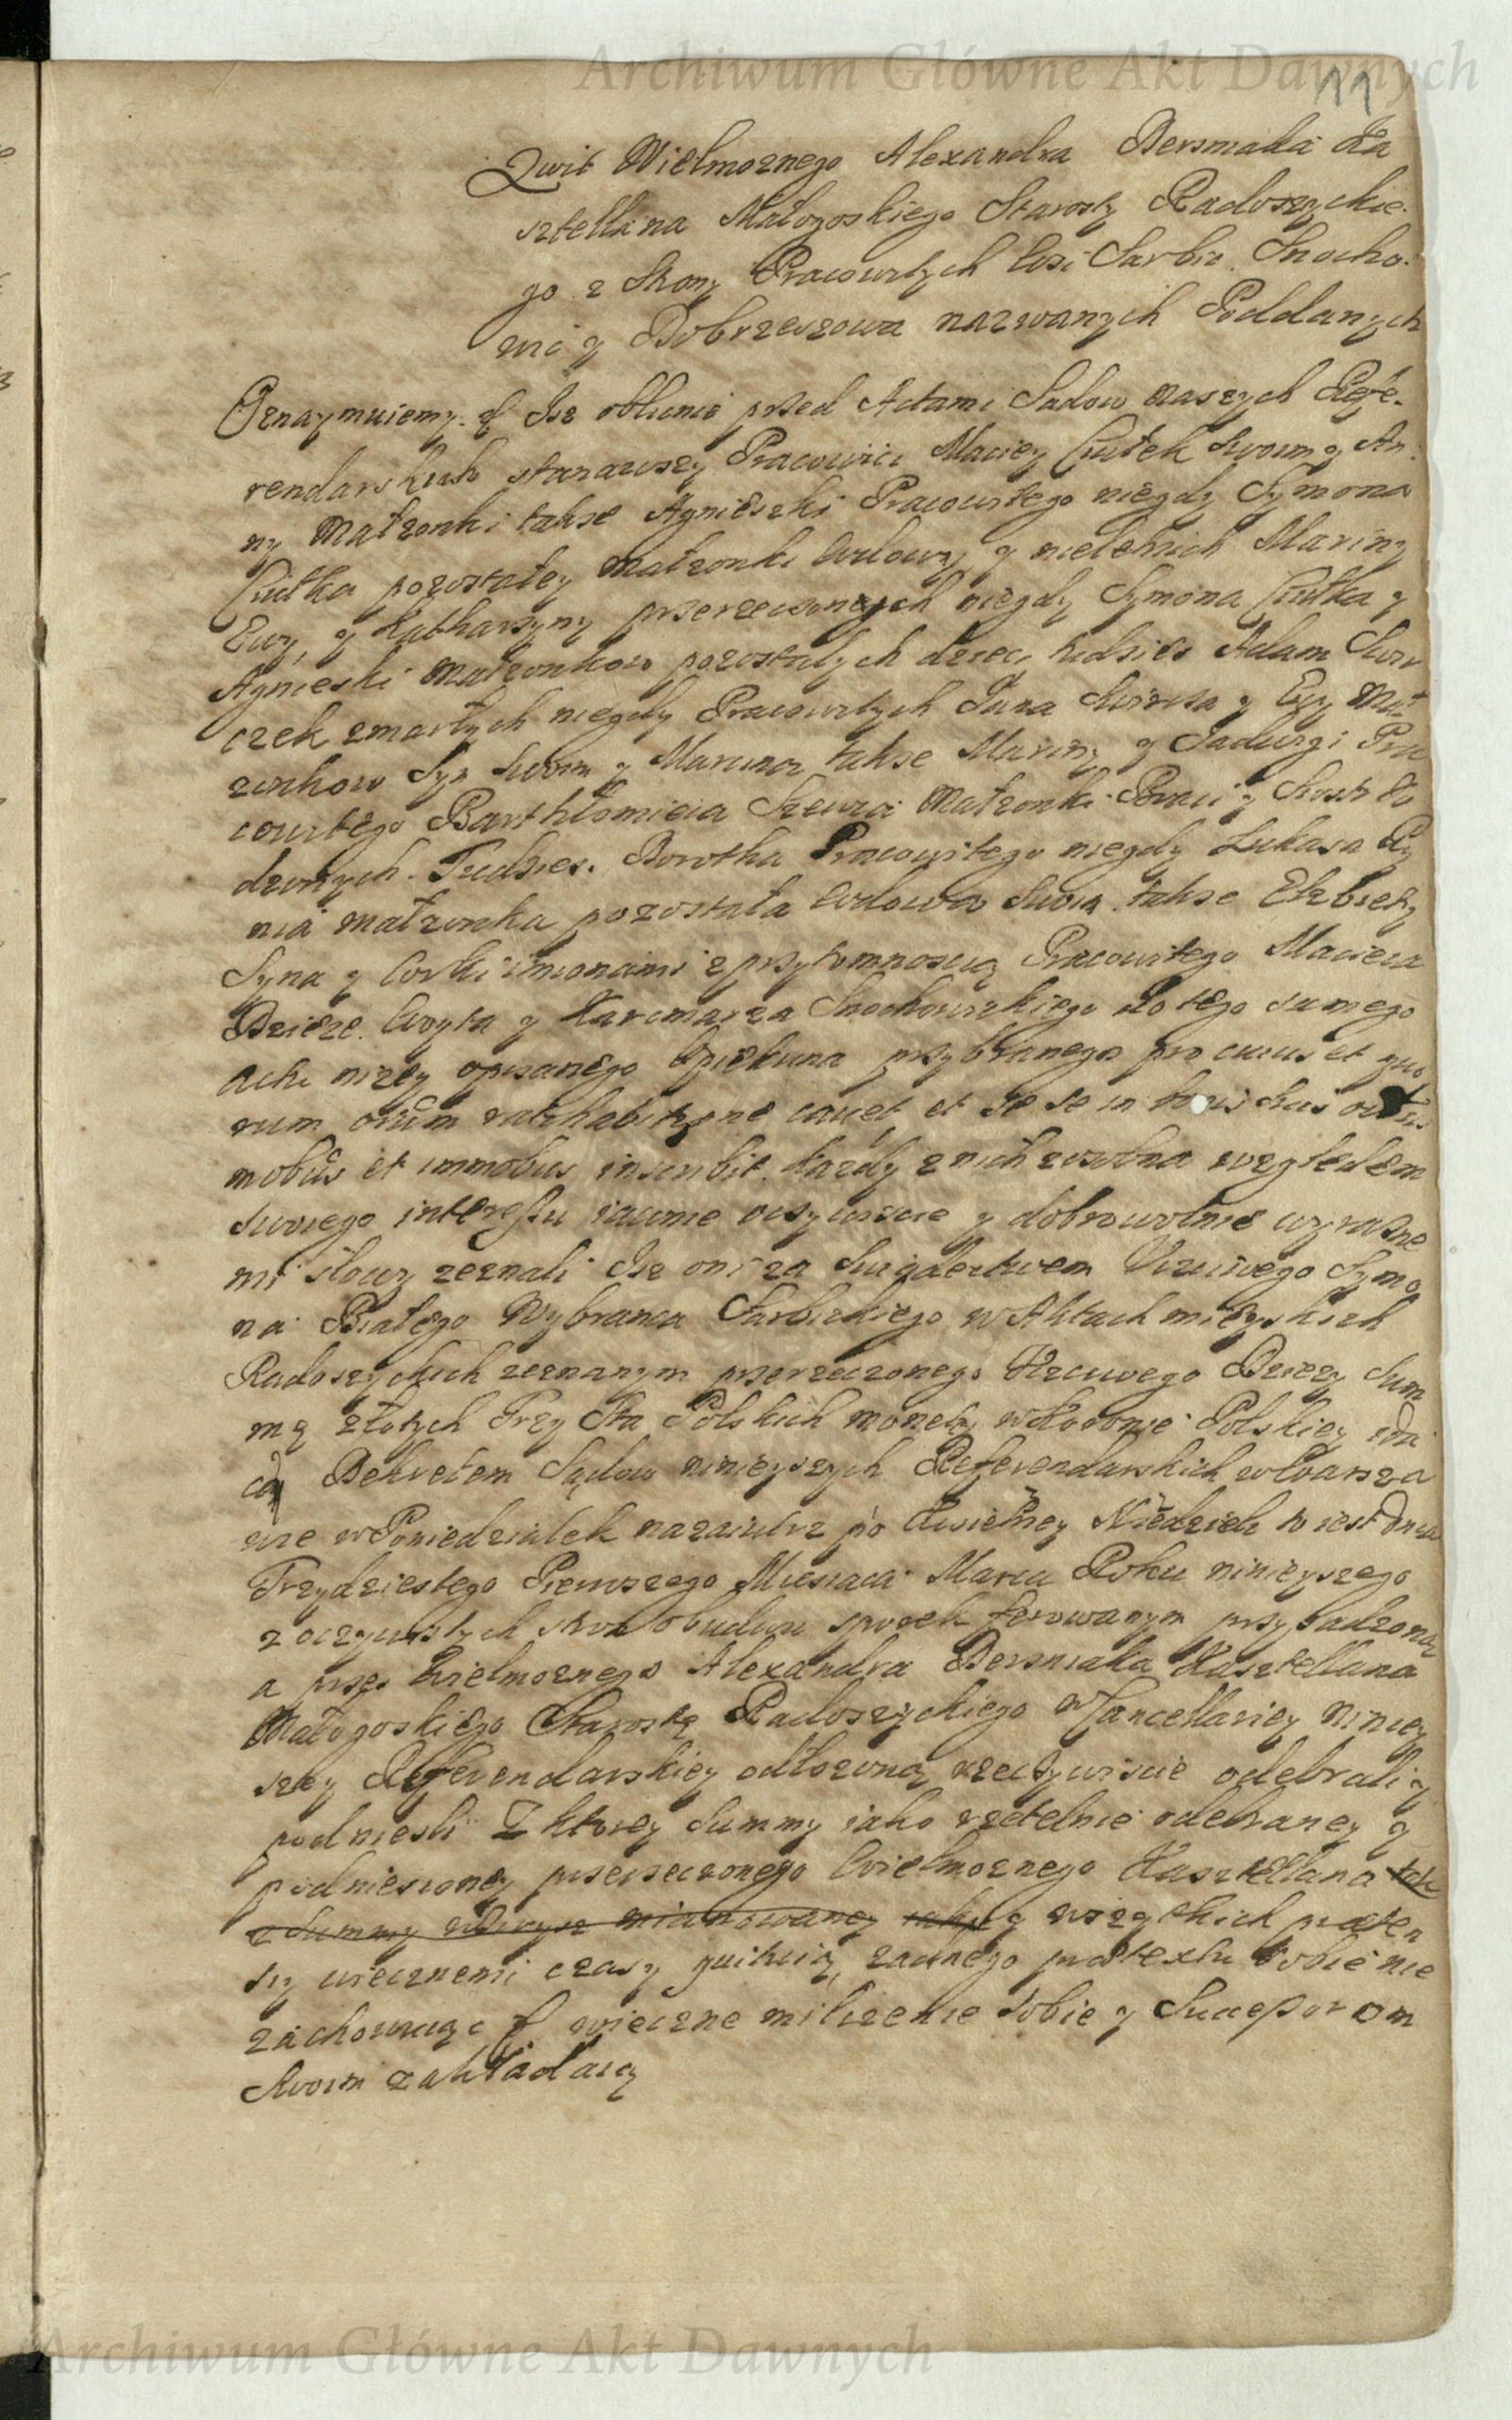 Archiwum Główne Akt Dawnych
11
Qwit Wielmoznego Alexandra Bersniaka Ka
sztellana Małogoskiego Starosty Radoszyckie
go z Strony Pracowitych Wsi Sarbic Snocho
wic y Dobrzeszowa nazwanych Poddanych
Oznaymuiemy Isz oblicnie przed Actami Sadow naszych Refe
rendarskich stanawszy Pracowici Maciey Ciułek swoim y An
ny Małzonki takze Agnieszki Pracowitego niegdy Symona
Ciułka pozostałey małzonki Wdowy y nieletnich Maryny
Ewy, y Katharzyny przerzeczonych niegdy Symona Ciułka y
Agnieski Małzonkow pozostałych dzieci tudzies Adam
czek zmarłych niegdy Pracowitych Jana y Ewy Mał
zonkow Syn swoim y Marcina takze Maryny y Jadwigi Pra
cowitego Barthłomieia Małzonki Braci y Siostr Ro
dzonych. Tudzies. Dorotha Pracowitego niegdy Lukasza
nia małzonka pozostała Wdowa swoim takze Elzbiety
Syna y Corki imionami z przytomnoscią Pracowitego Macieia
Dzieze Woyta y Karcmarza Snochowskiego do tego samego
actu nizey opisanego Opiekuna przybranego pro cuius et quo
rum onium ratihabitione cavet et se se in bonis suis
mobus et immobus inscribit kazdy z nich zosobna względem
swoiego interessu iawnie oczywiscie y dobrowolnie wyrazne
mi słowy zeznali Isz oni za Swiadectwem Uczciwego Symo
na Białego Wybranca Sarbickiego w Aktach mieyskich
Radoszyckich zeznanym przerzeczonego Uczciwego Dziezy Sum
mą złotych Trzy Sta Polskich monety w Koronie Polskiey
cą Dekretem Sądow ninieyszych Referendarskich w Warsza
wie w Poniedziałek nazaiutrz po Niedzieli to iest Dnia
Trzydziestego Pierwszego Miesiaca Marca Roku ninieyszego
z oczywistych stron obudwu sporek ferowanym przysadzoną
a przes Wielmoznego Alexandra Bersniaka Kasztellana
Małogoskiego Starostę Radoszyckiego w Cancellariey niniey
szey Referendarskiey odłozoną rzeczywiscie odebrali y
podniesli Z ktorey Summy iako rzetelnie odebraney y
podniesioney przerzeczonego Wielmoznego Kasztellana tak
z Summy mianowaney iako y wszytkich praeten
syi wiecznemi czasy quituią zadnego praetextu sobie nie
zachowuiąc wieczne milczenie sobie y Successorom
swoim zakładaią
Archiwum Główne Akt Dawnych